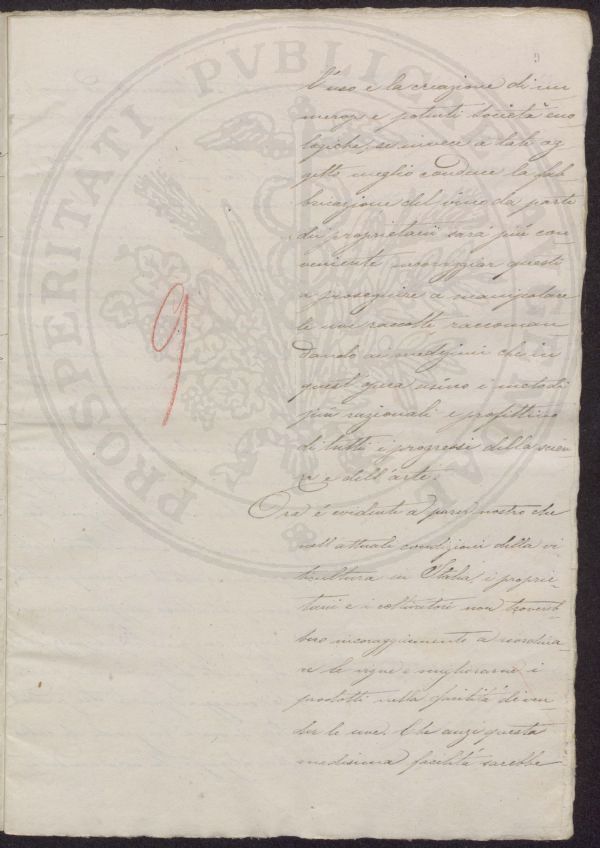 9
L'uso e la creazione di nu
merose e potenti Società eno
logiche, se invece a tale og
getto meglio conduce la fab
bricazione del vino da parte
dei proprietarii sarà più con
veniente incoraggiar questi
a proseguire a manipolare
le uve raccolte raccoman
dando ai medesimi che in
quest'opera usino i metodi
più razionali e profittino
di tutti i progressi della scien
za e dell'arte.
Ora è evidente a parer nostro che
nell'attuali condizioni della vi
ticultura in Italia, i proprie
tarii e i coltivatori non trovereb
bero incoraggiamento a riordina
re le vigne e migliorarne i
prodotti nella facilità di ven
der le uve. Che anzi questa
medesima facilità sarebbe
9
PROSPERITATI PVBLICAE AVGENDAE